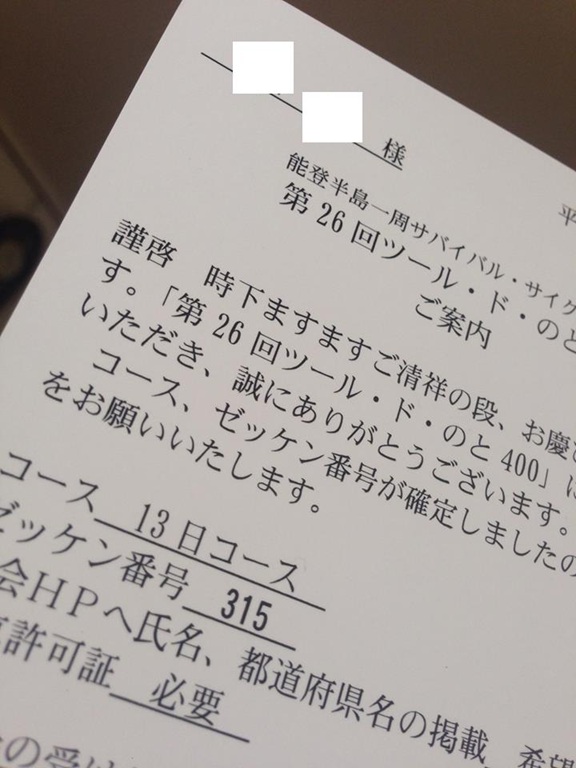 様
平
能登半島一周サバイバル・サイク
第26回ツール・ド・のと
ご案内
謹啓　時下ますますご清祥の段、お慶び
す。「第26回ツール・ド・のと400」に
いただき、誠にありがとうございます。
コース、ゼッケン番号が確定しましたの
をお願いいたします。
コース 13日コース
ゼッケン番号 315
会HPへ氏名、都道府県名の掲載 希望
許可証 必要
の受け